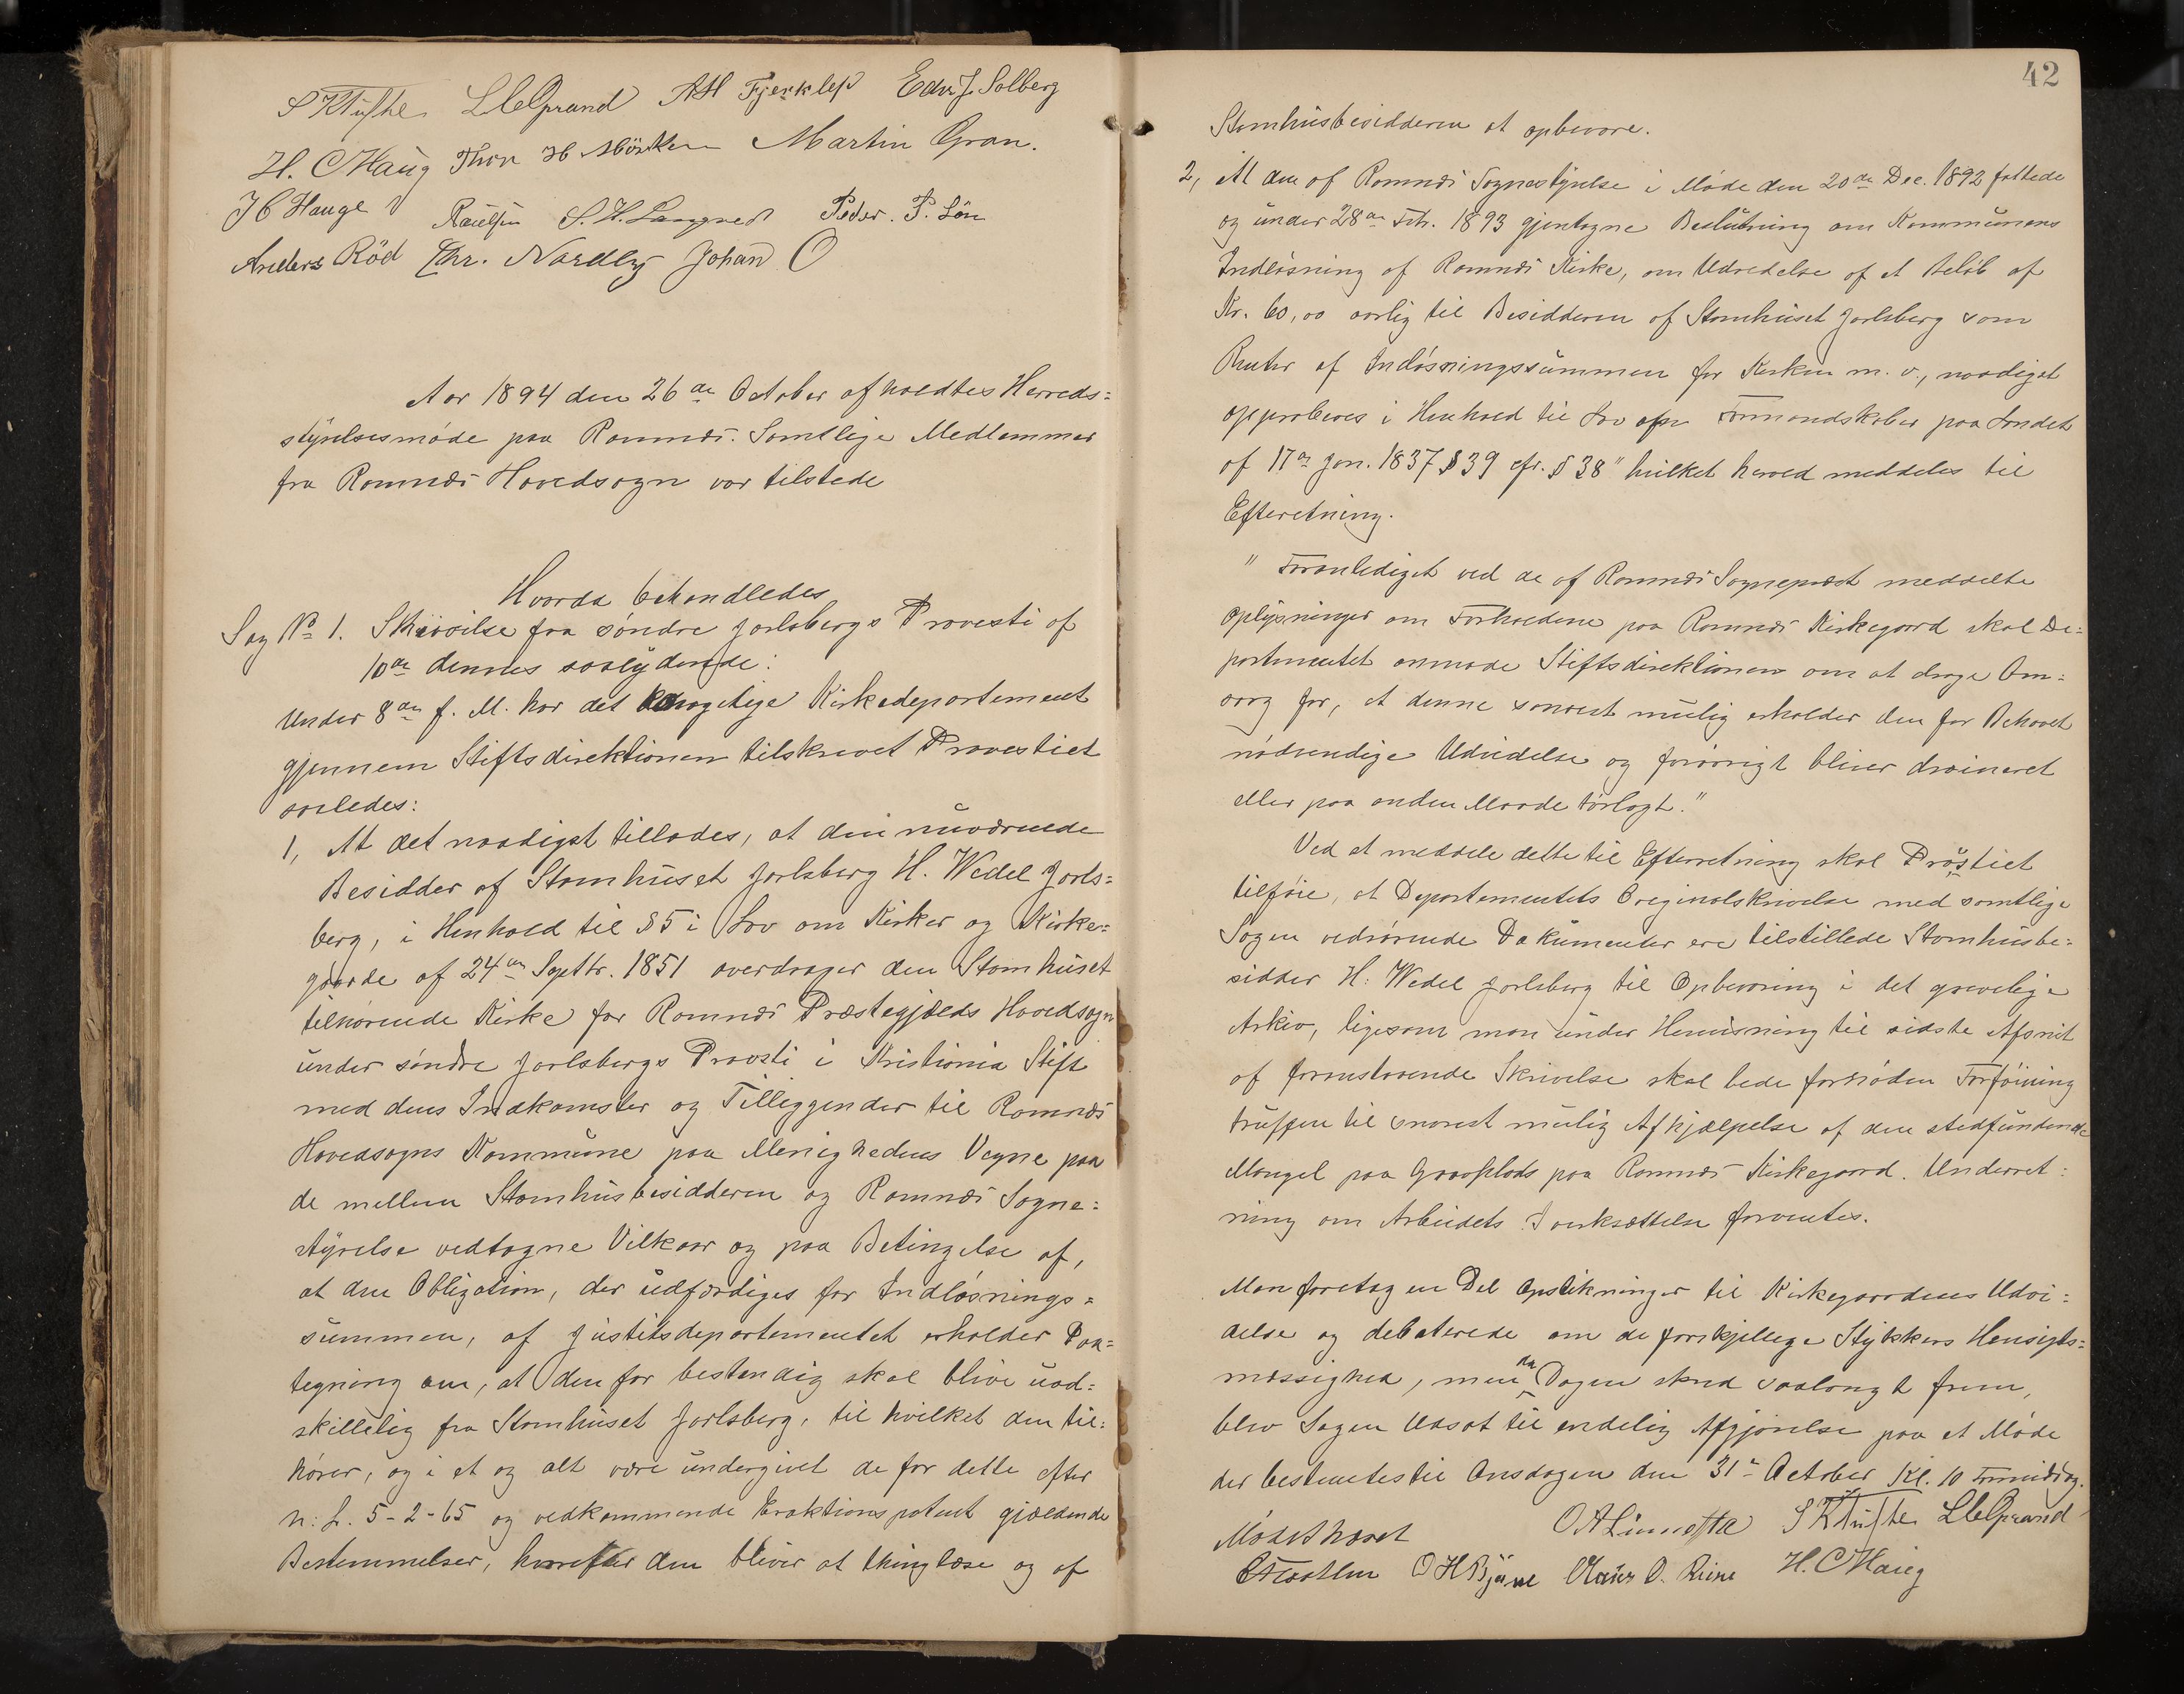 S K Tufte L C Grand A H Fjerklep Edv. J. Solberg
H. C Haug Thor H Mörken Martin Gran.
J C Hauge Paulsen S. H. Langved Peder. P. Lön
Anders Röd Chr. Nordby Johan O
Aar 1894 den 26de October afholdtes Herreds=
styrelsesmøde paa Ramnæs. Samtlige Medlemmer
fra Ramnæs Hovedsogn var tilstede
Hvorda behandledes
Sag No 1. Skrivelse fra søndre Jarlsbergs Provsti af
10de dennes saalydende:
Under 8de f. M. har det kongelige Kirkedepartement
gjennem Stiftsdirektionen tilskrevet Provstiet
saaledes:
1, At det naadigst tillades, at den nuværende
Besidder af Stamhuset Jarlsberg H. Wedel Jarls=
berg, i Henhold til § 5 i Lov om Kirker og Kirke=
gaarde af 24de Septbr. 1851 overdrager den Stamhuset
tilhørende Kirke for Ramnæs Præstegjælds Hovedsogn
under søndre Jarlsbergs Provsti i Kristiania Stift
med dens Indkomster og Tilliggender til Ramnæs
Hovedsogns Kommune paa Menighedens Vegne paa
de mellem Stamhusbesidderen og Ramnæs Sogne=
styrelse vedtagne Vilkaar og paa Betingelse af,
at den Obligation, der udfærdiges for Indløsnings=
summen, af Justitsdepartementet erholder Paa=
tegning om, at den for bestandig skal blive uad=
skillelig fra Stamhuset Jarlsberg, til hvilket den til=
hører, og i et og alt være undergivet de for dette efter
N: L. 5-2-65 og vedkommende Eraktionspatent gjældende
Bestemmelser, hvorefter den bliver at thinglæse og af
42
Stamhusbesidderen at opbevare.
2, At den af Ramnæs Sognestyrelse i Møde den 20de Dec. 1892 fattede
og under 28de Febr. 1893 gjentagne Beslutning om Kommunens
Indløsning af Ramnæs Kirke, om Udredelse af et Beløb af
Kr. 60,00 aarlig til Besidderen af Stamhuset Jarlsberg som
Renter af Indløsningssummen for Kirken m. v., naadigst
approberes i Henhold til Lov om Formandskaber paa Landet
af 17de Jan. 1837 § 39 cfr. § 38" hvilket herved meddeles til
Efteretning.
" Foranlediget ved de af Ramnæs Sogneprest meddelte
Oplysninger om Forholdene paa Ramnæs Kirkegaard skal De=
partementet anmode Stiftsdirektionen om at drage Om=
sorg for, at denne snarest mulig erholder den for Behovet
nødvendige Udvidelse og forøvrigt bliver draineret
eller paa anden Maade tørlagt."
Ved at meddele dette til Efterretning skal Pröstiet
tilføie, at Departementets Originalskrivelse med samtlige
Sagen vedrørende Dokumenter ere tilstillede Stamhusbe=
sidder H: Wedel Jarlsberg til Opbevaring i det grevelige
Arkiv, ligesom man under Henvisning til sidste Afsnit
af foranstaaende Skrivelse skal bede fornøden Forføining
truffen til snarest mulig Afhjælpelse af den stedfundende
Mangel paa Gravplads paa Ramnæs Kirkegaard. Underret=
ning om Arbeidets Iverksættelse forventes.
Man foretog en Del Opstikninger til Kirkegaardens Udvi=
delse og debaterede om de forskjellige Stykkers Hensigts=
mæssighed, men da Dagen skred saalangt frem,
blev Sagen Udsat til endelig Afgjørelse paa et Møde
der bestemtes til Onsdagen den 31te October Kl. 10 Formiddag.
Mødet hævet
O A Linnestta S K Tufte L C Grand
O H Bjüne H. C Haug